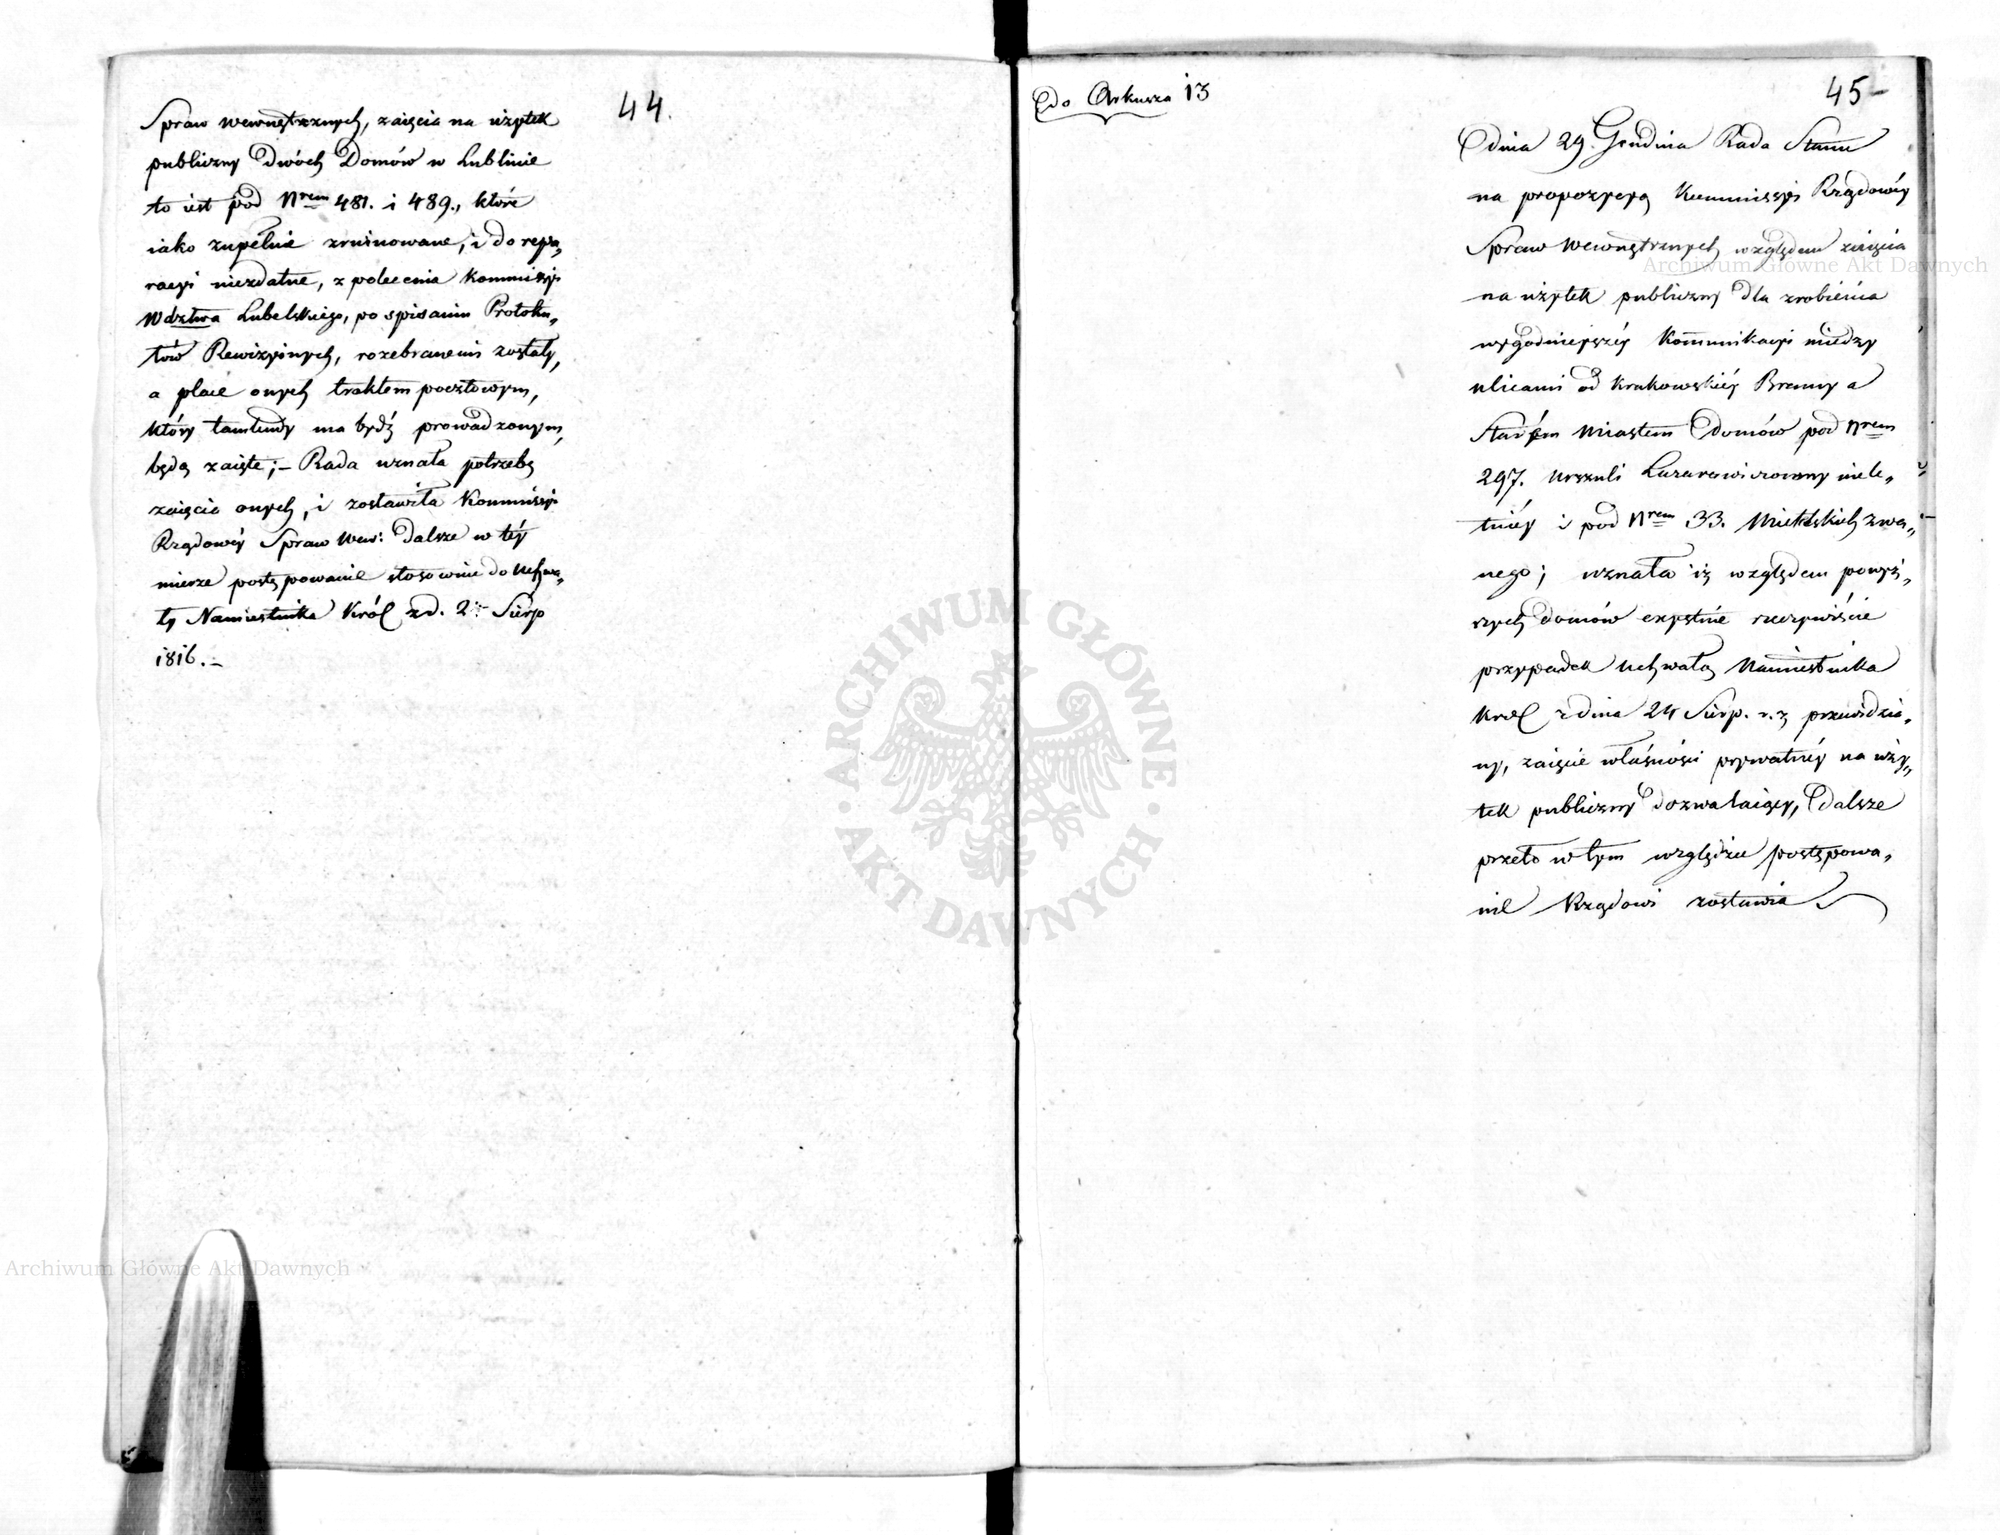 44.
Spraw wewnętrznych, zaięcia na użytek
publiczny dwóch Domów w Lublinie
to iest pod Nrem 481. i 489., które
iako zupełnie zruinowane, i do repa„
racyi niezdatne, z polecenia Kommissyi
Wdztwa Lubelskiego, po spisaniu Protoku„
łów Rewizyinych, rozebranemi zostały,
a place onych traktem pocztowym,
który tamtendy ma bydź prowadzonym,
będą zaięte; – Rada uznała potrzebę
zaięcia onych, i zostawiła Kommissyi
Rządowéy Spraw Wew: dalsze w téy
mierze postępowanie stosownie do uchwa„
ły Namiestnika Król z d. 2 Sierp
1816. –
do Arkusza 13
45 –
dnia 29 Grudnia Rada Stanu
na propozycyą Kommissyi Rządowéy
Spraw Wewnętrznych względem zaięcia
na użytek publiczny dla zrobienia
wygodnieyszéy Kommunikacyi między
ulicami od Krakowskiéy Bramy a
Starém Miastem domów pod Nrem
297. Urszuli Lazarowiczowny niele„
tniéy i pod Nrem 33. zwa„
nego; uznała iż względem powyż„
szych domów exystuie rzeczywiście
przypadek uchwałą Namiestnika
Król z dnia 24 Sierp. r. z przewidzia„
ny, zaięcie własności prywatnéy na uży„
tek publiczny dozwalaiący, dalsze
przeto w tym względzie postępowa„
nie Rządowi zostawia
Archiwum Główne Akt Dawnych
Archiwum Główne Akt Dawnych
ARCHIWUM GŁÓWNE · AKT DAWNYCH ·